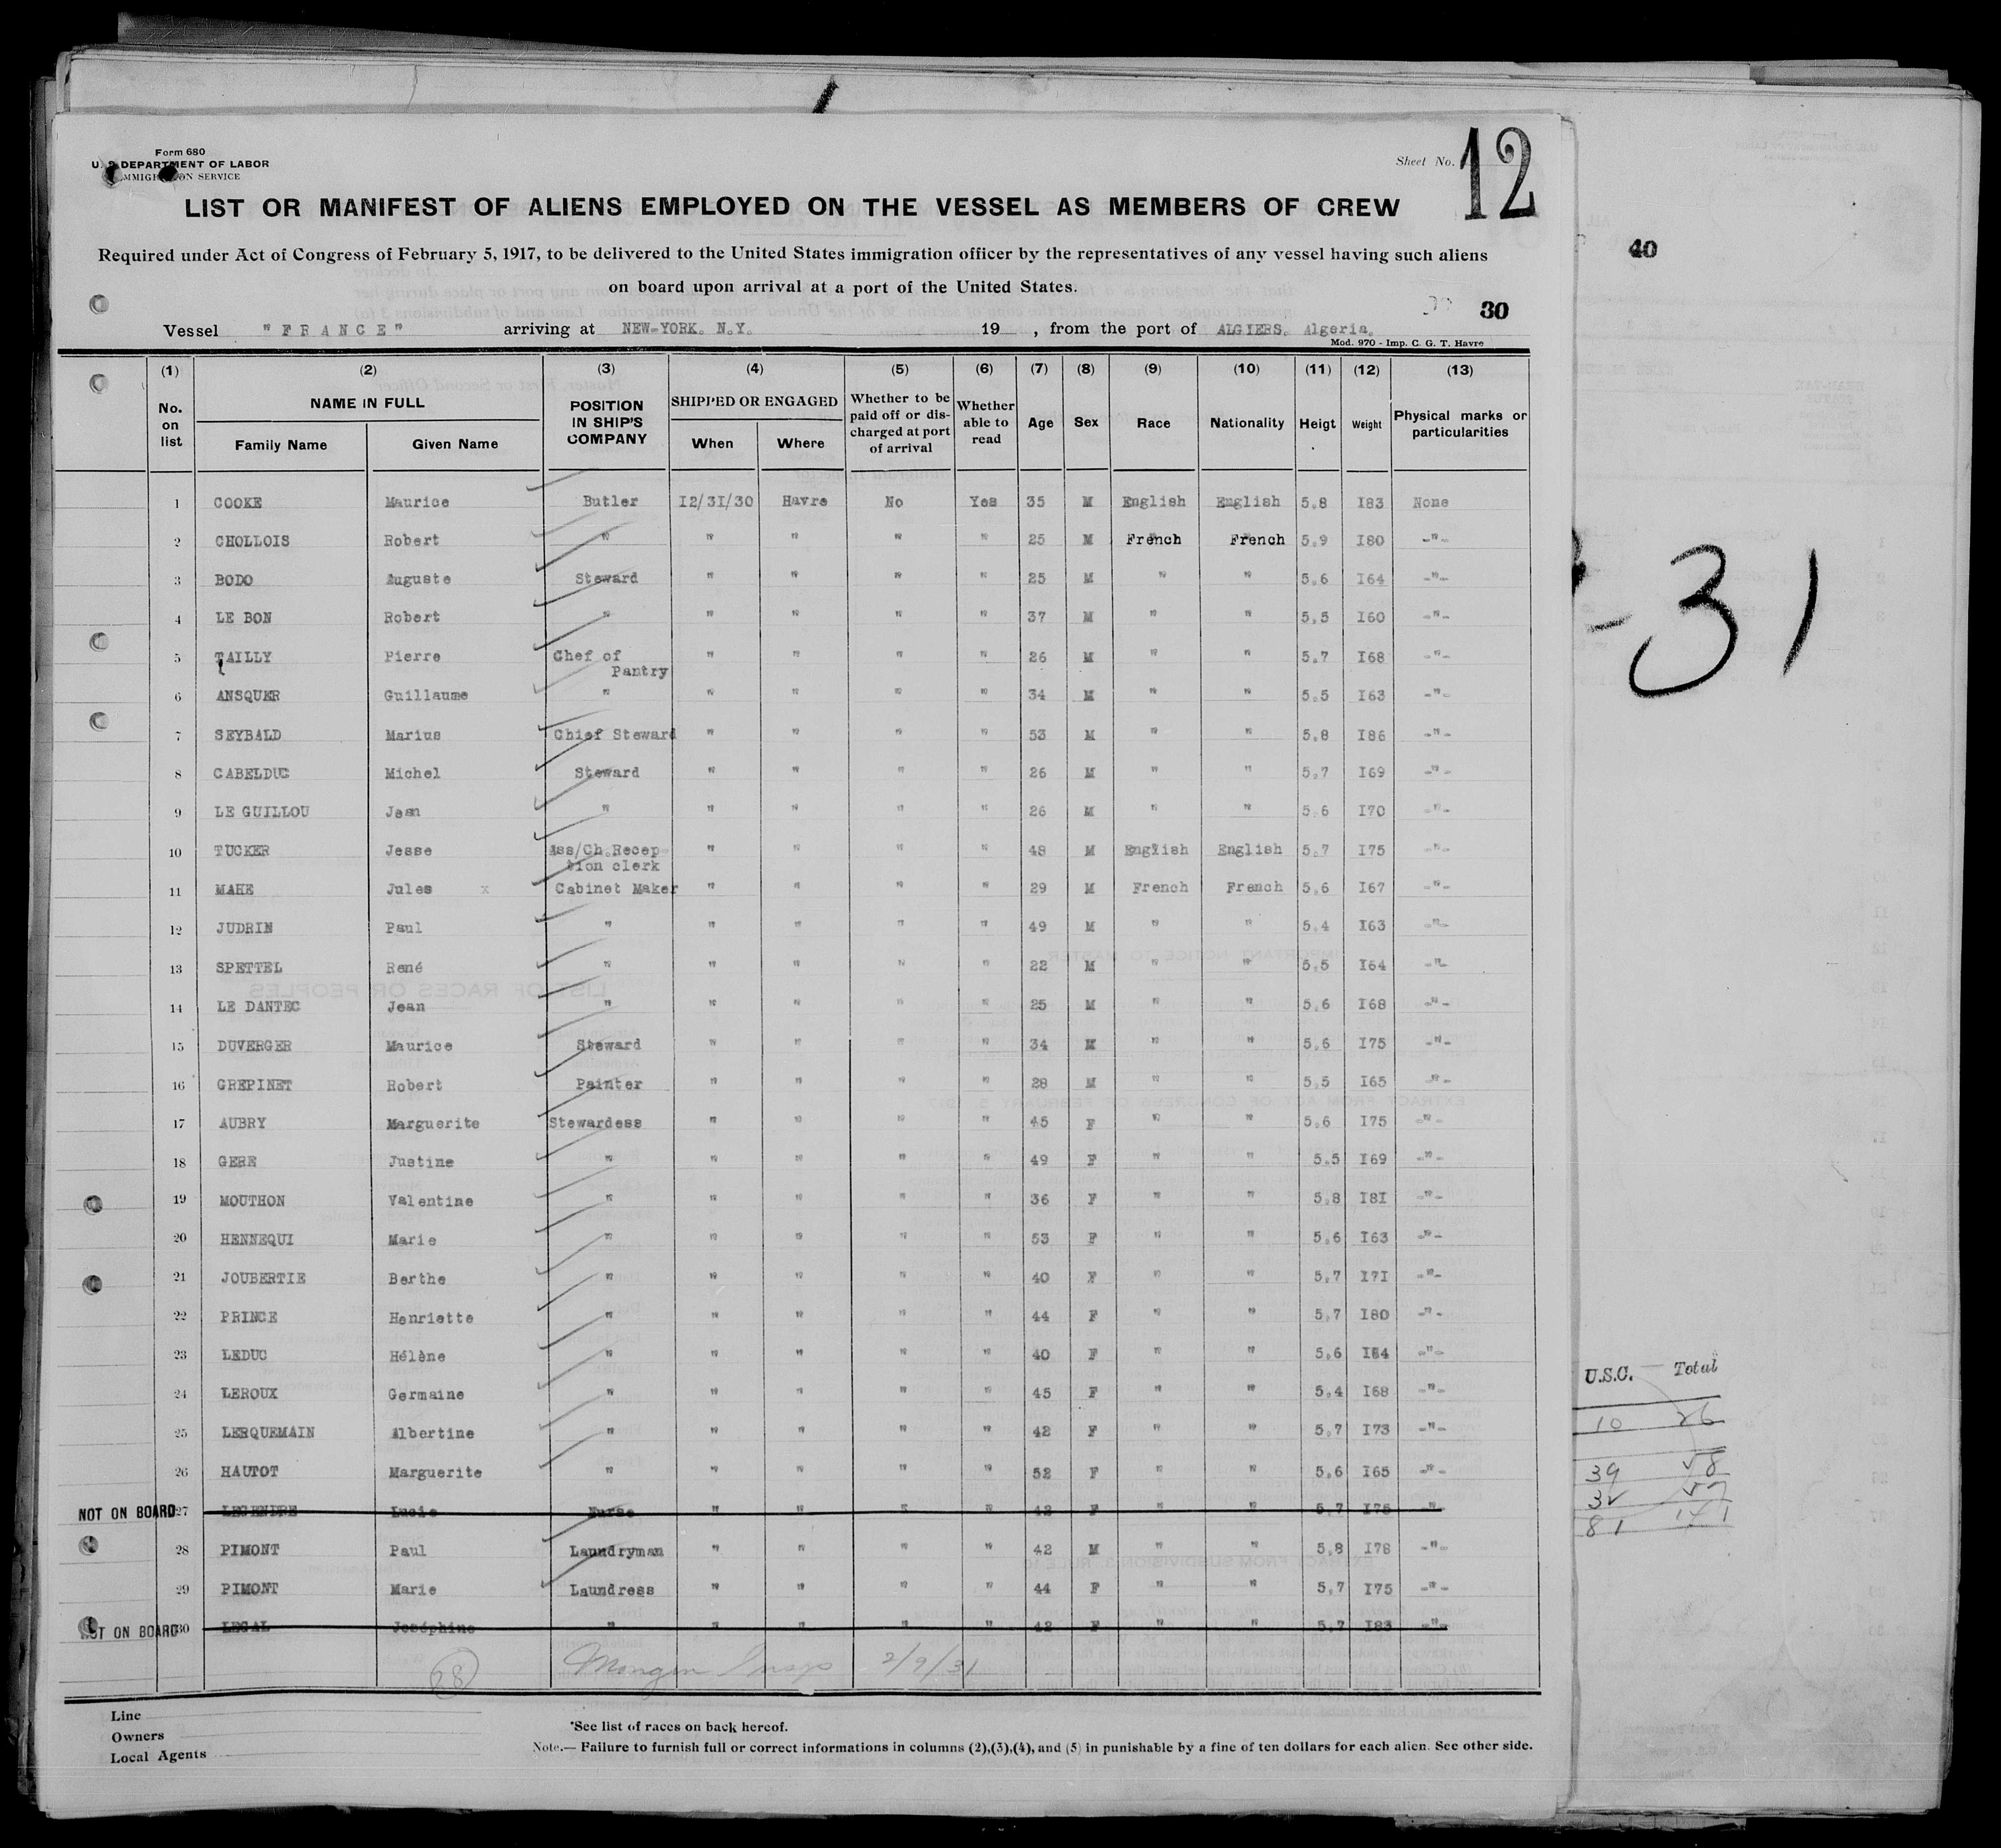 Form 680
U. S. DEPARTMENT OF LABOR
IMMIGRATION SERVICE
Sheet No. 12
LIST OR MANIFEST OF ALIENS EMPLOYED ON THE VESSEL AS MEMBERS OF CREW
Required under Act of Congress of February 5, 1917, to be delivered to the United States immigration officer by the representatives of any vessel having such aliens
on board upon arrival at a port of the United States.
40
30
Vessel "FRANCE" arriving at NEW-YORK. N.Y. 19 , from the port of ALGIERS. Algeria.
Mod. 970 - Imp. C. G. T. Havre
(1) (2) (3) (4) (5) (6) (7) (8) (9) (10) (11) (12) (13)
No. on list NAME IN FULL Family Name Given Name POSITION IN SHIP'S COMPANY SHIPPED OR ENGAGED When Where Whether to be paid off or discharged at port of arrival Whether able to read Age Sex Race Nationality Heigt Weight Physical marks or particularities
1 COOKE Maurice Butler I2/3I/30 Havre No Yes 35 M English English 5.8 I83 None
2 CHOLLOIS Robert " " " " " 25 M French French 5.9 I80 -"-
3 BODO Auguste Steward " " " " 25 M " " 5.6 I64 -"-
4 LE BON Robert " " " " " 37 M " " 5.5 I60 -"-
5 TAILLY Pierre Chef of Pantry " " " " 26 M " " 5.7 I68 -"-
6 ANSQUER Guillaume " " " " " 34 M " " 5.5 I63 -"-
7 SEYBALD Marius Chief Steward " " " " 53 M " " 5.8 I86 -"-
8 CABELDUC Michel Steward " " " " 26 M " " 5.7 I69 -"-
9 LE GUILLOU Jean " " " " " 26 M " " 5.6 I70 -"-
10 TUCKER Jesse Ass/Ch.Reception clerk " " " " 48 M English English 5.7 I75 -"-
11 MAHE Jules x Cabinet Maker " " " " 29 M French French 5.6 I67 -"-
12 JUDRIN Paul " " " " " 49 M " " 5.4 I63 -"-
13 SPETTEL René " " " " " 22 M " " 5.5 I64 -"-
14 LE DANTEC Jean " " " " " 25 M " " 5.6 I68 -"-
15 DUVERGER Maurice Steward " " " " 34 M " " 5.6 I75 -"-
16 GREPINET Robert Painter " " " " 28 M " " 5.5 I65 -"-
17 AUBRY Marguerite Stewardess " " " " 45 F " " 5.6 I75 -"-
18 GERE Justine " " " " " 49 F " " 5.5 I69 -"-
19 MOUTHON Valentine " " " " " 36 F " " 5.8 I8I -"-
20 HENNEQUI Marie " " " " " 53 F " " 5.6 I63 -"-
21 JOUBERTIE Berthe " " " " " 40 F " " 5.7 I7I -"-
22 PRINCE Henriette " " " " " 44 F " " 5.7 I80 -"-
23 LEDUC Hélène " " " " " 40 F " " 5.6 I64 -"-
24 LEROUX Germaine " " " " " 45 F " " 5.4 I68 -"-
25 LERQUEMAIN Albertine " " " " " 42 F " " 5.7 I73 -"-
26 HAUTOT Marguerite " " " " " 52 F " " 5.6 I65 -"-
NOT ON BOARD 27 LEGENDRE Lucie Nurse " " " " 42 F " " 5.7 I75 -"-
28 PIMONT Paul Laundryman " " " " 42 M " " 5.8 I78 -"-
29 PIMONT Marie Laundress " " " " 44 F " " 5.7 I75 -"-
NOT ON BOARD 30 LEGAL Joséphine " " " " " 42 F " " 5.7 I83 -"-
28 2/9/31
Line
Owners
Local Agents
*See list of races on back hereof.
Note.— Failure to furnish full or correct informations in columns (2),(3),(4), and (5) in punishable by a fine of ten dollars for each alien. See other side.
-31
U.S.C. Total
10 26
39 58
32 57
81 141